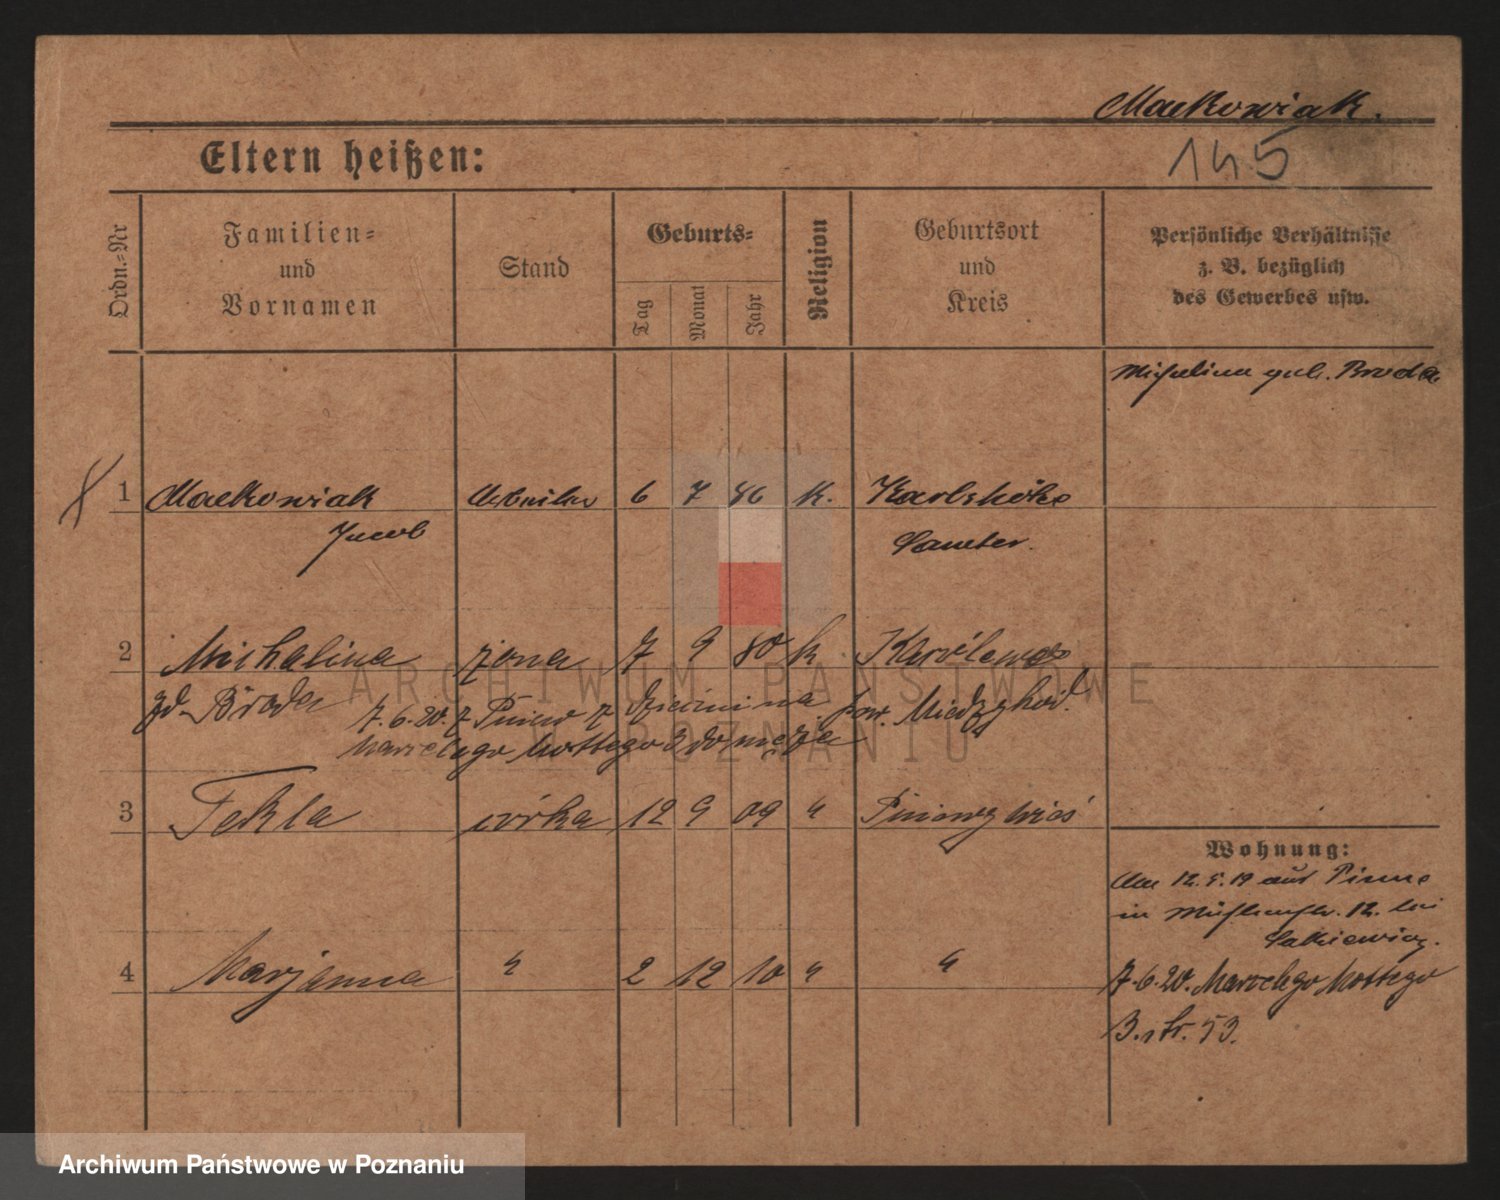 Maćkowiak.
145
Eltern heißen:
Ordn.=Nr
Familien=
und
Vornamen
Stand
Geburts=
Tag
Monat
Jahr
Religion
Geburtsort
und
Kreis
Persönliche Verhältnisse
z. B. bezüglich
des Gewerbes usw.
Michalina geb. Broda
1 Mackowiak Arbeiter 6 7 86 K. Karlshöhe
Jacob Samter.
2 Michalina żona 7 9 80 k
zd. Broda 7.6.20. z Pniew z dziećmi na pow. Międzychód.
Marcelego Mottego 3 do męża
3 Tekla córka 12 9 09 " Pniewy wieś
Wohnung:
Am 12.5.19 aus Pinne
in Mühlenstr. 12. bei
7.6.20. Marcelego Mottego
3. str. 53.
4 Marjanna " 2 12 10 " "
ARCHIWUM PAŃSTWOWE
W POZNANIU
Archiwum Państwowe w Poznaniu